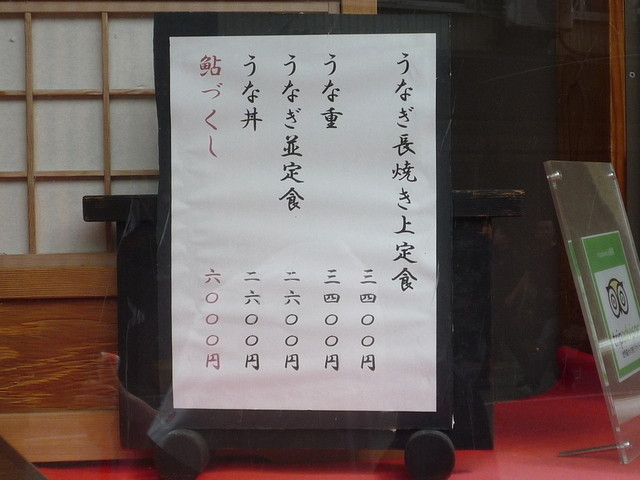 うなぎ長焼き上定食
三四〇〇円
うな重
三四〇〇円
うなぎ並定食
二六〇〇円
うな丼
二六〇〇円
鮎づくし
六〇〇〇円